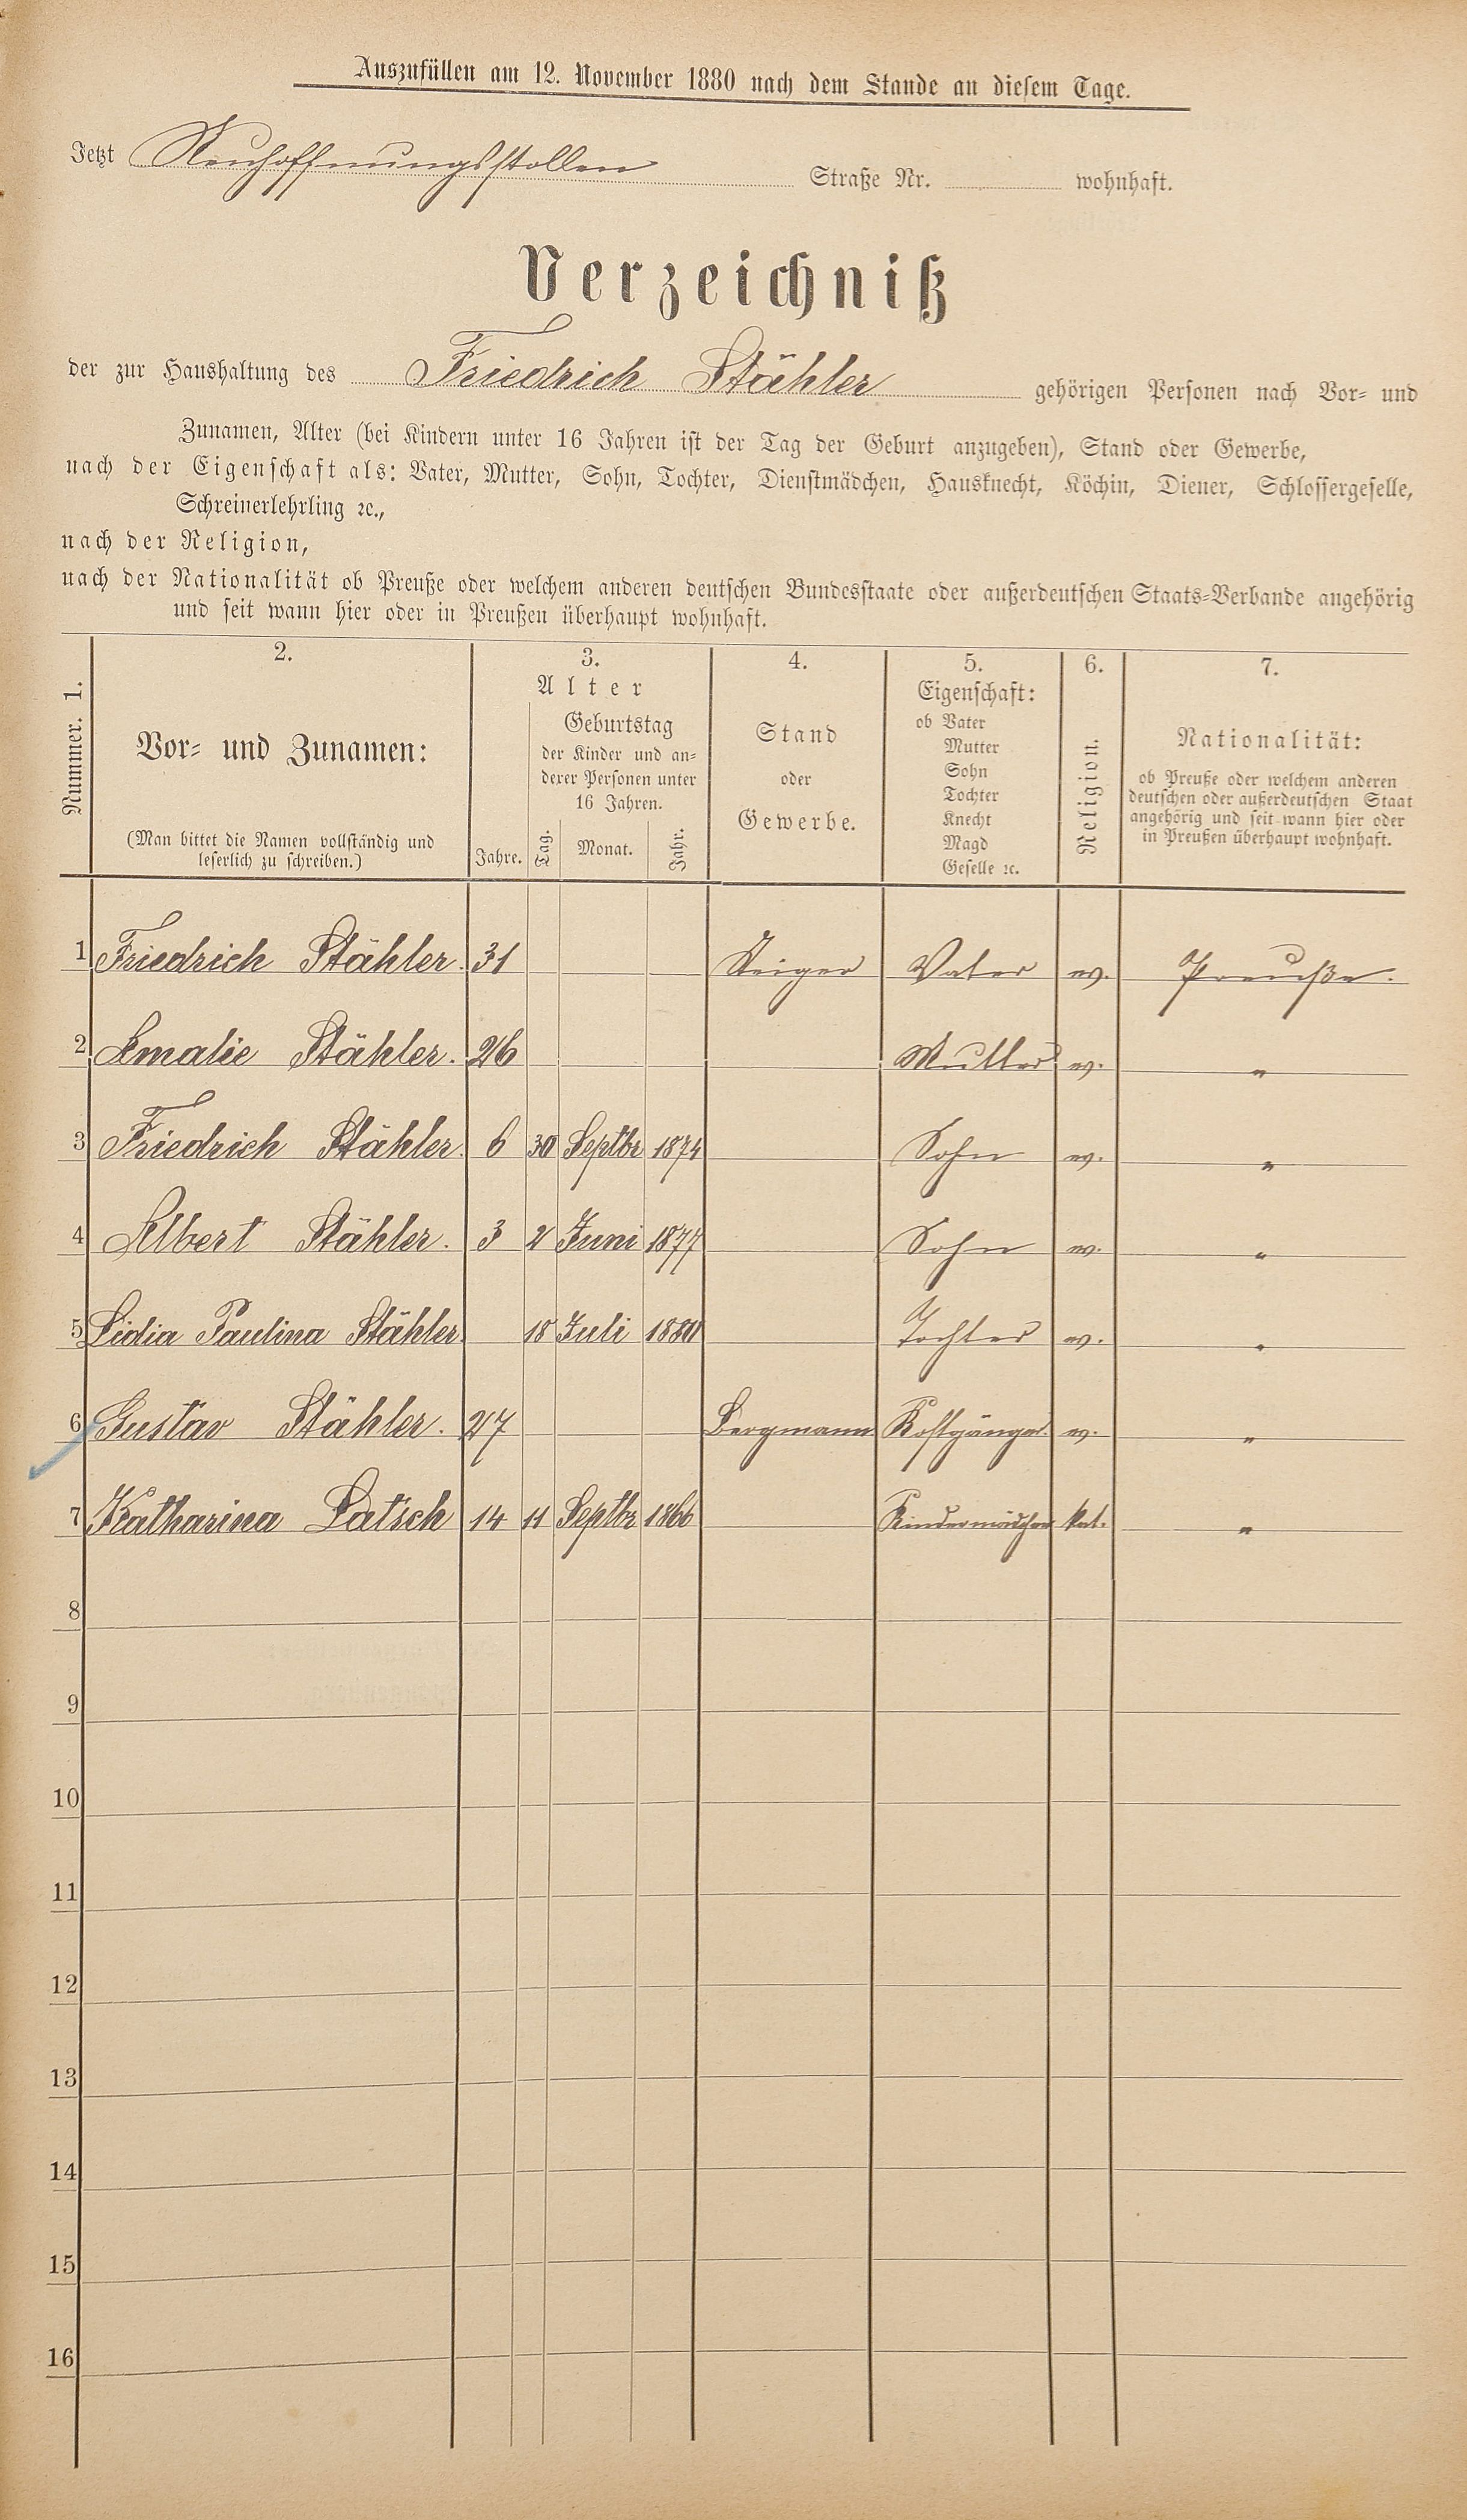 Auszufüllen am 12. November 1880 nach dem Stande an diesem Tage.
Jetzt Neuhoffnungsstollen Straße Nr. wohnhaft.
Verzeichniß
der zur Haushaltung des Friedrich Stähler gehörigen Personen nach Vor- und
Zunamen, Alter (bei Kindern unter 16 Jahren ist der Tag der Geburt anzugeben), Stand oder Gewerbe,
nach der Eigenschaft als: Vater, Mutter, Sohn, Tochter, Dienstmädchen, Hausknecht, Köchin, Diener, Schlossergeselle,
Schreinerlehrling ꝛc.,
nach der Religion,
nach der Nationalität ob Preuße oder welchem anderen deutschen Bundesstaate oder außerdeutschen Staats-Verbande angehörig
und seit wann hier oder in Preußen überhaupt wohnhaft.
Nummer. 1.
2.
Vor- und Zunamen:
(Man bittet die Namen vollständig und
leserlich zu schreiben.)
3.
Alter
Jahre.
Geburtstag
der Kinder und an-
derer Personen unter
16 Jahren.
Tag. Monat. Jahr.
4.
Stand
oder
Gewerbe.
5.
Eigenschaft:
ob Vater
Mutter
Sohn
Tochter
Knecht
Magd
Geselle ꝛc.
6.
Religion.
7.
Nationalität:
ob Preuße oder welchem anderen
deutschen oder außerdeutschen Staat
angehörig und seit wann hier oder
in Preußen überhaupt wohnhaft.
1 Friedrich Stähler. 31 Steiger Vater ev. Preuße.
2 Amalie Stähler. 26 Mutter ev. "
3 Friedrich Stähler. 6 30 Septbr 1874 Sohn ev. "
4 Albert Stähler. 3 2 Juni 1877 Sohn ev. "
5 Lidia Paulina Stähler 18 Juli 1880 Tochter ev. "
6 Gustav Stähler. 27 Bergmann Kostgänger ev. "
7 Katharina Latsch 14 11 Septbr 1866 Kindermädchen kat. "
8
9
10
11
12
13
14
15
16